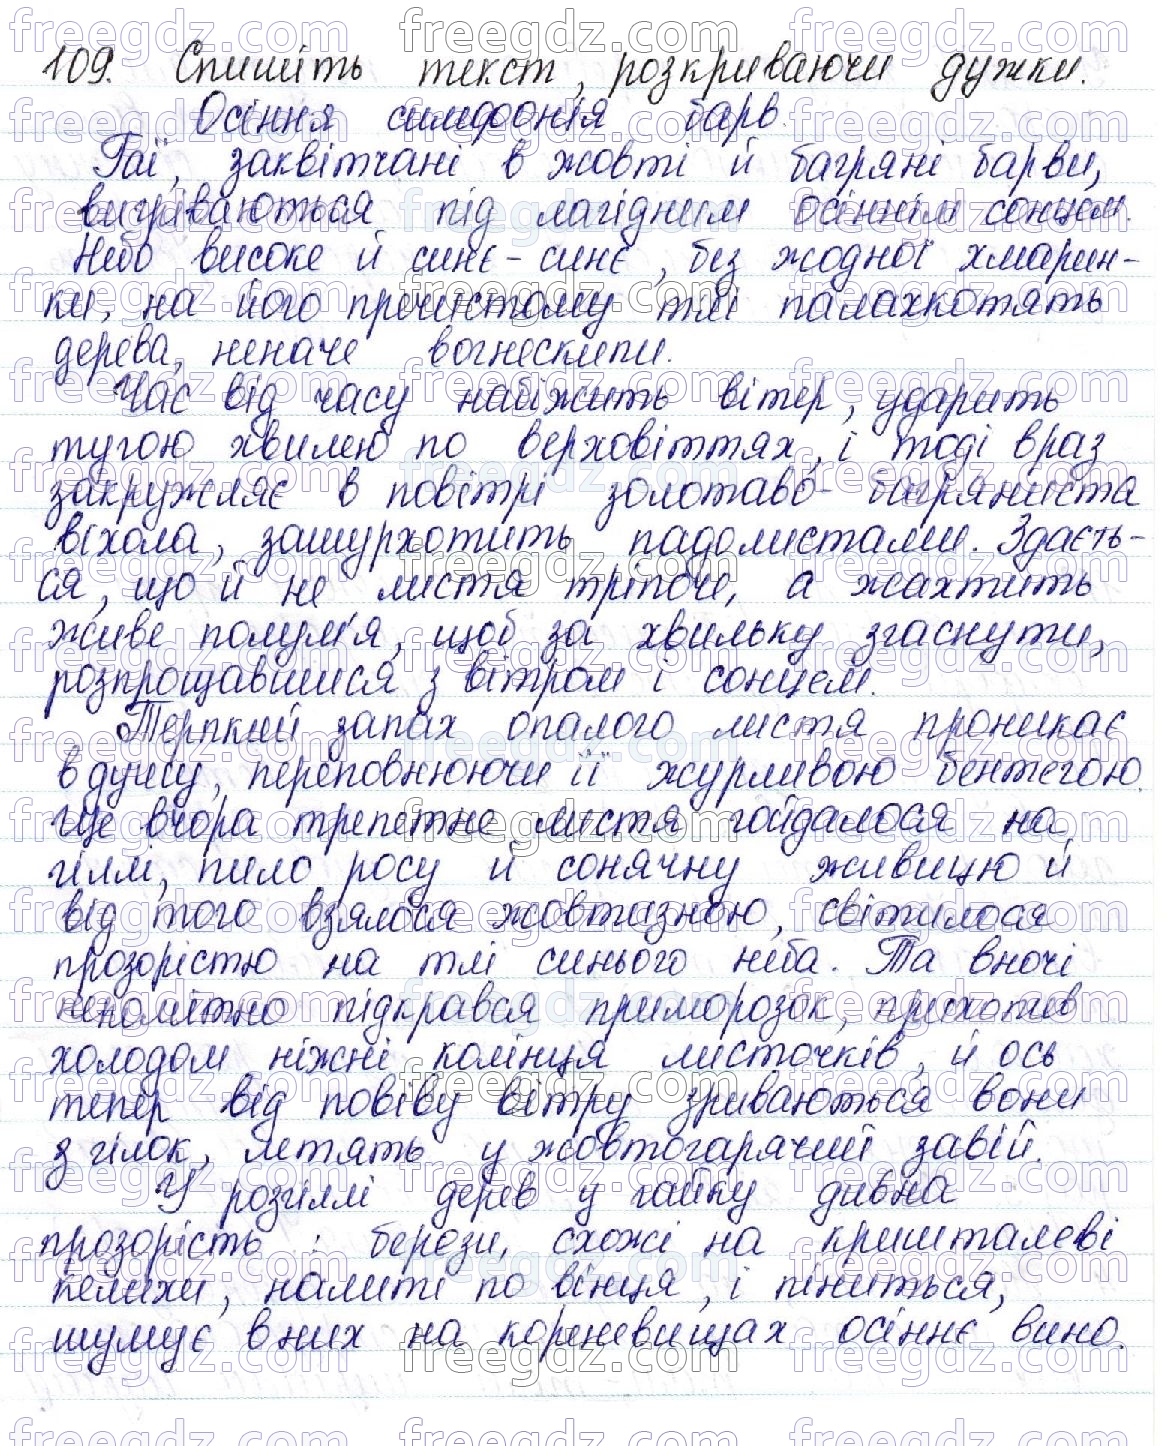 109. Спишіть текст, розкриваючи дужки.
Осіння симфонія барв.
Гаї, заквітчані в жовті й багряні барви,
вигріваються під лагідним осіннім сонцем.
Небо високе й синє-синє, без жодної хмарин-
ки, на його пречистому тлі палахкотять
дерева, неначе вогнескипи.
Час від часу набіжить вітер, ударить
тугою хвилею по верховіттях, і тоді враз
закружляє в повітрі золотаво-багряниста
віхола, зашурхотить падолистами. Здаєть-
ся, що й не листя тріпоче, а жахтить
живе полум'я, щоб за хвильку згаснути,
розпрощавшися з вітром і сонцем.
Терпкий запах опалого листя проникає
в душу, переповнюючи її журливою бентегою.
Ще вчора трепетне листя гойдалося на
гіллі, пило росу й сонячну живицю й
від того взялося жовтизною, світилося
прозорістю на тлі синього неба. Та вночі
непомітно підкрався приморозок, прихопив
холодом ніжні колінця листочків, й ось
тепер від повіву вітру зриваються вони
з гілок, летять у жовтогарячий завій.
У розгіллі дерев у гайку дивна
прозорість: берези, схожі на кришталеві
келихи, налиті по вінця, і піниться,
шумує в них на кореневищах осіннє вино.
freegdz.com